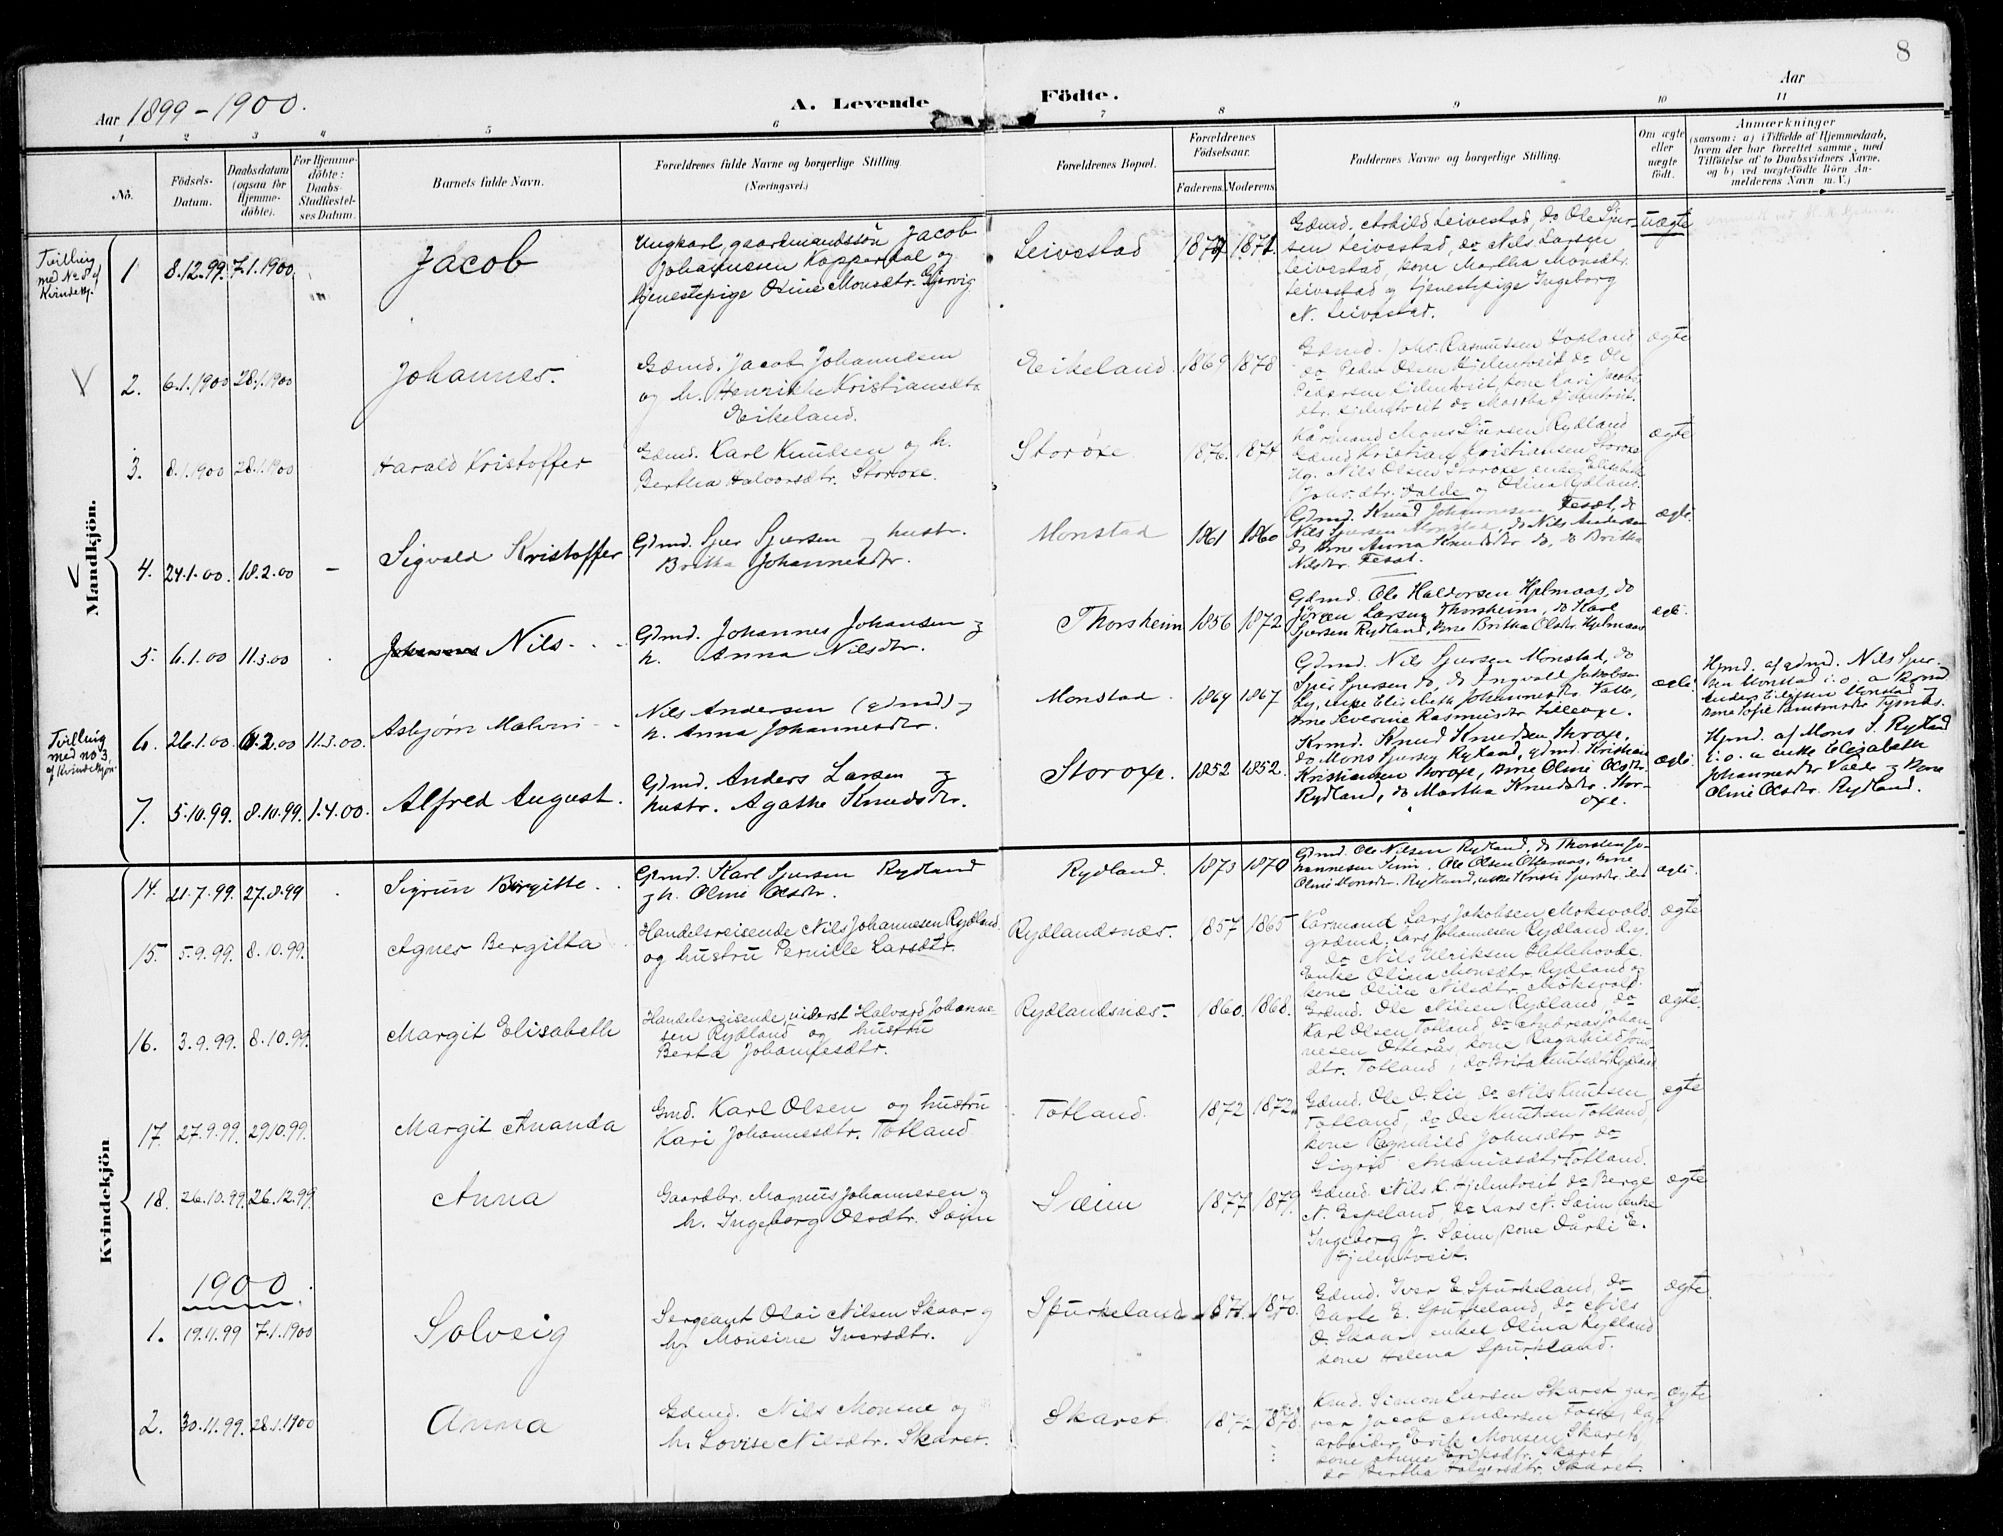 8
Aar 1899-1900.
A. Levende Födte.
Aar
1 2 3 4 5 6 7 8 9 10 11
No.
Födsels-Datum.
Daabsdatum (ogsaa for Hjemmedöbte).
For Hjemmedöbte: Daabs-Stadfæstelses Datum.
Barnets fulde Navn.
Forældrenes fulde Navne og borgerlige Stilling.
(Næringsvei.)
Forældrenes Bopæl.
Forældrenes Födselsaar.
Faderens. Moderens.
Faddernes Navne og borgerlige Stilling.
Om ægte eller uægte födt.
Anmærkninger
(saasom: a) i Tilfælde af Hjemmedaab,
hvem der har forrettet samme, med
Tilföielse af to Daabsvidners Navne.
og b) ved uægtefödte Börn An-
melderens Navn m. V.)
Mandkjön.
Tvilling
med No 8 af
Kvindekj.
1 8.12.99. 7.1.1900. Jacob
Ungkarl, gaardmandssøn Jacob
Johannesen Koppardal og
tjenestepige Oline Monsdtr. Gjervig
Leivestad 1871.
Gdmd. Askild Leivestad, do Ole Sjur-
sen Leivestad, do Nils Larsen
Leivestad, kone Martha Monsdtr.
Leivestad og tjenestepige Ingeborg
N. Leivestad.
uægte
2. 6.1.1900 28.1.1900 Johannes.
Gdmd. Jacob Johannesen
og h. Henrikke Kristiansdtr
Eikeland.
Eikeland. 1869 1878
Gdmd. Johs. Rasmussen Hosland
do Peder Olsen Hjelmtveit do Ole
Pedersen Hjelmtveit kone Kari Jacobs-
dtr. Hjelmtveit do Martha Hjelmtveit.
ægte
3. 8.1.1900 28.1.1900 Harald Kristoffer
Gdmd. Karl Knudsen og h.
Bertha Halvorsdtr. Storoxe.
Storoxe 1876. 1874
Kårmand Mons Sjursen Rydland
Gdmd Kristian Kristiansen Storoxe
Ug. Nils Olsen Storoxe enke Elisabeth
Johs.dtr. Valde og Olina Rydland.
ægte
4. 24.1.00. 18.2.00 - Sigvald Kristoffer
Gdmd. Sjur Sjursen og hustr.
Britha Johannesdtr.
Monstad 1861 1860
Gdmd. Knud Johannesen Fesat, do
Nils Sjursen Monstad, do Nils Andersen
do kone Anna Knudsdtr do, do Britha
Nilsdtr. Fesat.
ægte.
5. 6.1.00 11.3.00 Johannes Nils.
Gdmd. Johannes Johansen og
h. Anna Nilsdtr.
Thorsheim 1856 1872
Gdmd. Ole Haldorsen Hjelmaas, do
Jørgen Larsen Thorsheim, do Karl
Sjursen Rydland, kone Britha Olsdtr Hjelmaas
ægte.
6. 26.1.00. 6.2.00 11.3.00. Asbjørn Malvin
Nils Andersen (gdmd) og
h. Anna Johannesdtr.
Monstad 1864 1867
Gdmd. Nils Sjursen Monstad, do
Sjur Sjursen do, do Ingvald Jakobsen
Ly, enke Elisabeth Johannesdtr Valle,
kone Severine Rasmusdtr Lilleoxe.
ægte.
Hjmd. af gdmd. Nils Sjur-
sen Monstad i. o. a kmd
Anders Eilifsen Monstad og
kone Sofie Samsonsdtr Tysnes.
Tvilling
med no 3,
af Kvindekjøn.
7. 5.10.99. 8.10.99. 1.4.00. Alfred August.
Gdmd. Anders Larsen og
hustr. Agathe Knudsdtr.
Storoxe. 1852 1852.
Krmd. Knud Knudsen Storoxe,
do Mons Sjursen Rydland, gdmd. Kristian
Kristiansen Storoxe, kone Oline Olsdtr.
Rydland, do Martha Knudsdtr. Stor-
oxe.
ægte.
Hjmd. af Mons S. Rydland
i. o. a enke Elisabeth
Johannesdtr Valde og kone
Oline Olsdtr. Rydland.
Kvindekjön
14. 21.7.99. 27.8.99 Sigrun Birgitte.
Gdmd. Karl Sjursen Rydland
og h. Oline Olsdtr.
Rydland. 1873 1870
Gdmd. Ole Nilsen Rydland, do Thorsten Jo-
hannesen Seim. Ole Olsen Otteraas, kone
Oline Monsdtr. Rydland, enke Kristi Sjursdtr. ibd
ægte.
15. 5.9.99. 8.10.99. Agnes Bergitta
Handelsreisende Nils Johannesen Rydland
og hustru Pernille Larsdtr.
Rydlandsnæs. 1857 1865
Kårmand Lars Jakobsen Moksvold
grdmd. Lars Johannesen Rydland
do Nils Ulriksen Hetlehovde.
Enke Olina Monsdtr. Rydland og
kone Oline Nilsdtr. Moksvold.
ægte
16. 3.9.99. 8.10.99. Margit Elisabeth
Handelsreisende, viderst Halvard Johanne-
sen Rydland og hustru
Berta Johannesdtr.
Rydlandsnæs 1860. 1868.
Grdmd. Ole Nilsen Rydland, do
Karl Olsen Totland, do Andreas Johan-
nesen Otterås, kone Ragnhild Johns-
dtr. Totland, do Brita Knutsdtr Rydland
ægte.
17. 27.9.99. 29.10.99. Margit Ananda
Gmd. Karl Olsen og hustru
Kari Johannesdtr. Totland
Totland. 1872 1872.
Gdmd. Ole O. Lie do Nils Knutsen
Totland, do Ole Knutsen Totland,
kone Ragnhild Johnsdtr do
Sigrid Ananiasdtr Totland.
ægte
18. 26.10.99. 26.12.99. Anna
Gaardbr. Magnus Johannesen og
h. Ingeborg Olsdtr. Sæim
Sæim 1877 1879.
Gdmd. Nils K. Hjelmtveit do Berge
N. Espeland, do Lars N. Sæim enke
Ingeborg J. Sæim, kone Dårdi E.
Hjelmtveit.
ægte
1900
1. 19.11.99 7.1.1900 Solveig
Sergeant Olai Nilsen Skaar og
h. Monsine Iversdtr.
Spurkeland 1871. 1870.
Gdmd. Iver E Spurkeland, do
Barte E. Spurkeland, do Nils
O. Skaar, enke Olina Rydland
kone Helena Spurkeland.
ægte.
2. 30.11.99. 28.1.1900 Anna
Gdmd. Nils Monsen og
h. Lovise Nilsdtr. Skaret.
Skaret. 1872 1878.
Kmd. Simon Larsen Skaret gar-
ver Jacob Andersen Fosse, dag-
arbeider Erik Monsen Skaret
kone Anne Eriksdtr. Skaret
do Bertha Holgersdtr. Skaret.
ægte